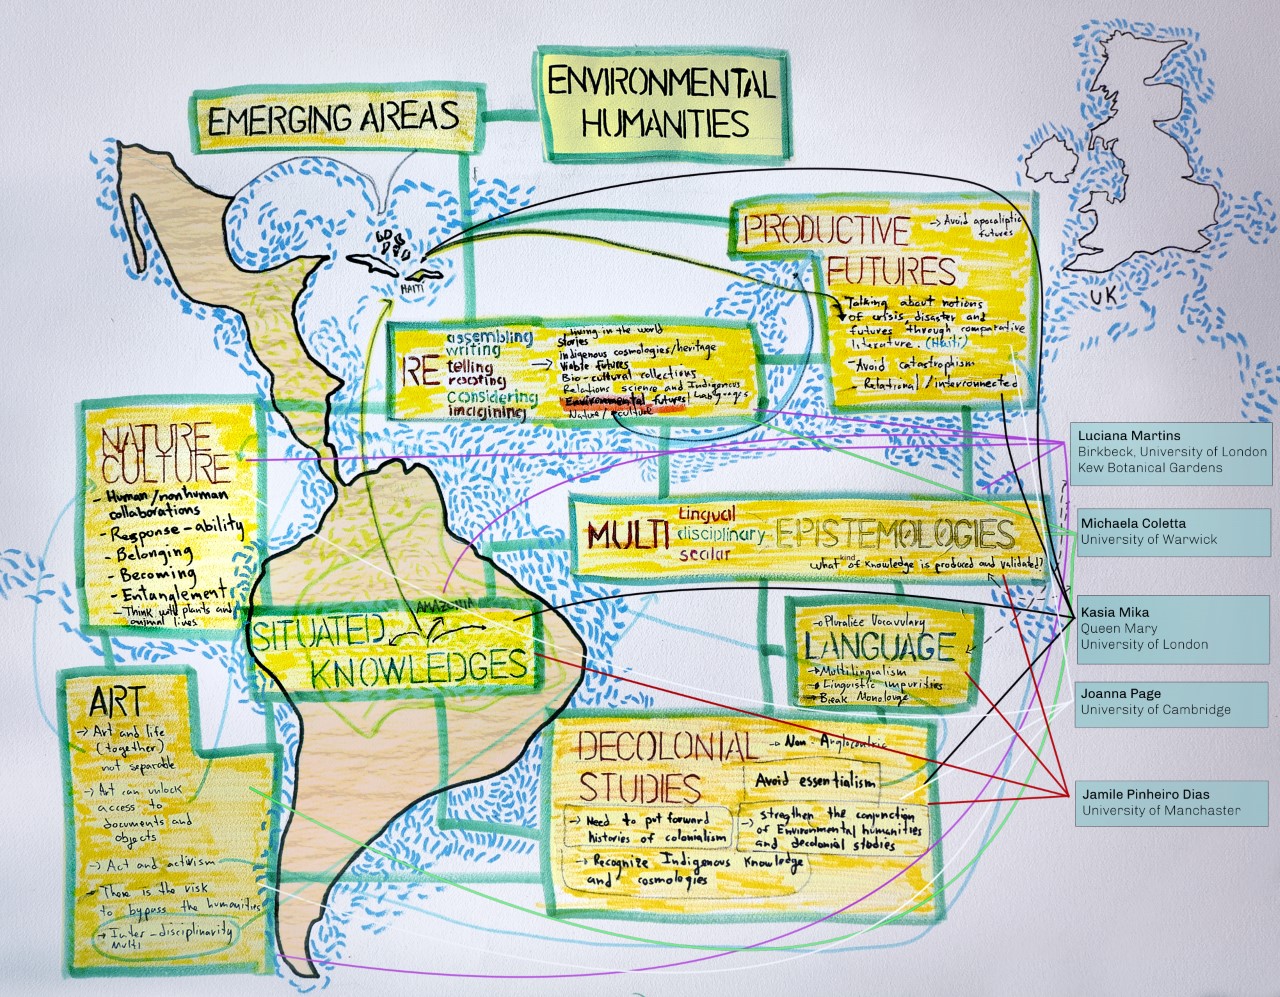 ENVIRONMENTAL
HUMANITIES
EMERGING AREAS
PRODUCTIVE
FUTURES
→ Avoid apocaliptic
futures
Talking about notions
of crisis, disaster and
futures through comparative
literature. (Haiti)
- Avoid catastrophism
- Relational / interconnected
UK
HAITI
RE
assembling
writing
telling
rooting
considering
imagining
→
- Living in the world
Stories
indigenous cosmologies/heritage
Viable futures
Bio-cultural collections
Relations science and Indigenous
Languages
Environmental futures
Nature/culture
NATURE
CULTURE
- Human/nonhuman
collaborations
- Response-ability
- Belonging
- Becoming
- Entanglement
- Think with plants and
animal lives
MULTI
lingual
disciplinary-
scalar
EPISTEMOLOGIES
what kind of knowledge is produced and validated?
AMAZONIA
SITUATED
KNOWLEDGES
→ Pluralize Vocavulary
LANGUAGE
→ Multilingialism
→ Linguistic impurities
→ Break Monolouge
ART
→ Art and life
(together)
not separable
→ Art can unlock
access to
documents and
objects
→ Act and activism
→ There is the risk
to bypass the humanities
→ Inter-disciplinarity
Multi
DECOLONIAL
STUDIES
→ Non-Anglocentric
Avoid essentialism
→ Need to put forward
histories of colonialism
→ stregthen the conjunction
of Environmental humanities
and decolonial studies
→ Recognize Indigenous Knowledge
and cosmologies
Luciana Martins
Birkbeck, University of London
Kew Botanical Gardens
Michaela Coletta
University of Warwick
Kasia Mika
Queen Mary
University of London
Joanna Page
University of Cambridge
Jamile Pinheiro Dias
University of Manchaster